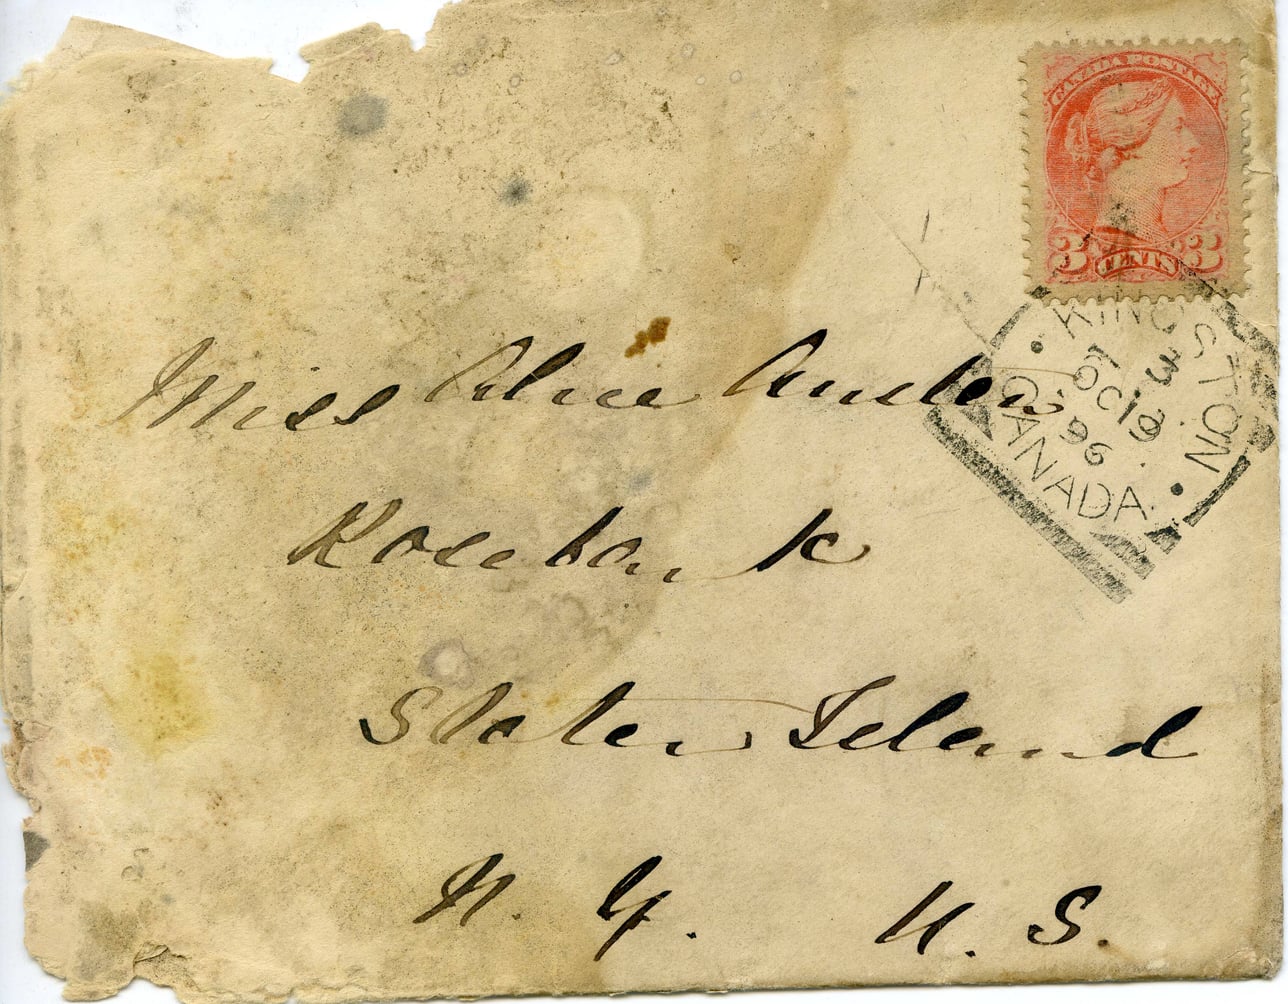 CANADA POSTAGE
3 CENTS 3
KINGSTON
3
OC 19
96
CANADA
Miss Alice Austen
Rosebank
Staten Island
N. Y. U. S.